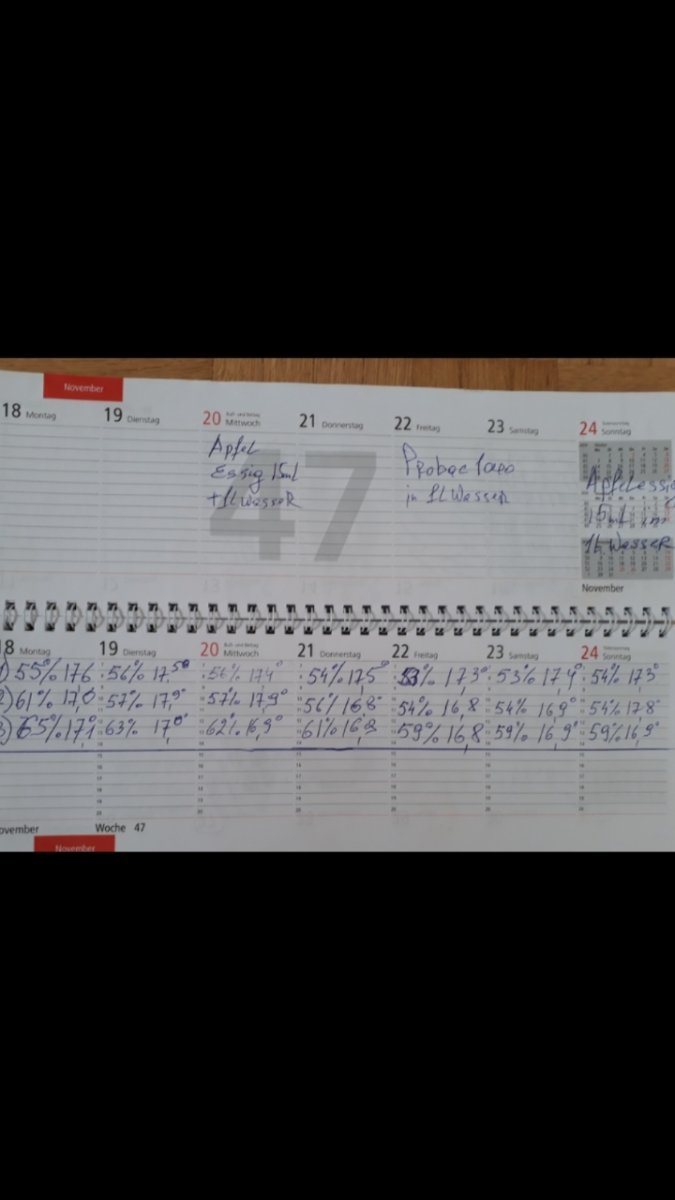 November
18 Montag 19 Dienstag 20 Mittwoch 21 Donnerstag 22 Freitag 23 Samstag 24 Sonntag
Apfel
Essig 15ml
+1L Wasser
in 1L Wasser
Apfelessig
15ml im
1L Wasser
47
November
18 Montag 19 Dienstag 20 Mittwoch 21 Donnerstag 22 Freitag 23 Samstag 24 Sonntag
1) 55% 176 56% 17,5° 56% 174° 54% 17,5° 53% 17,3° 53% 17,4° 54% 17,3°
2) 61% 17,0 57% 17,9° 57% 17,9° 56% 16,8° 54% 16,8 54% 16,9° 54% 17,8
3) 65% 17,1° 63% 17,0° 62% 16,9° 61% 16,8 59% 16,8 59% 16,9° 59% 16,9°
November Woche 47
November